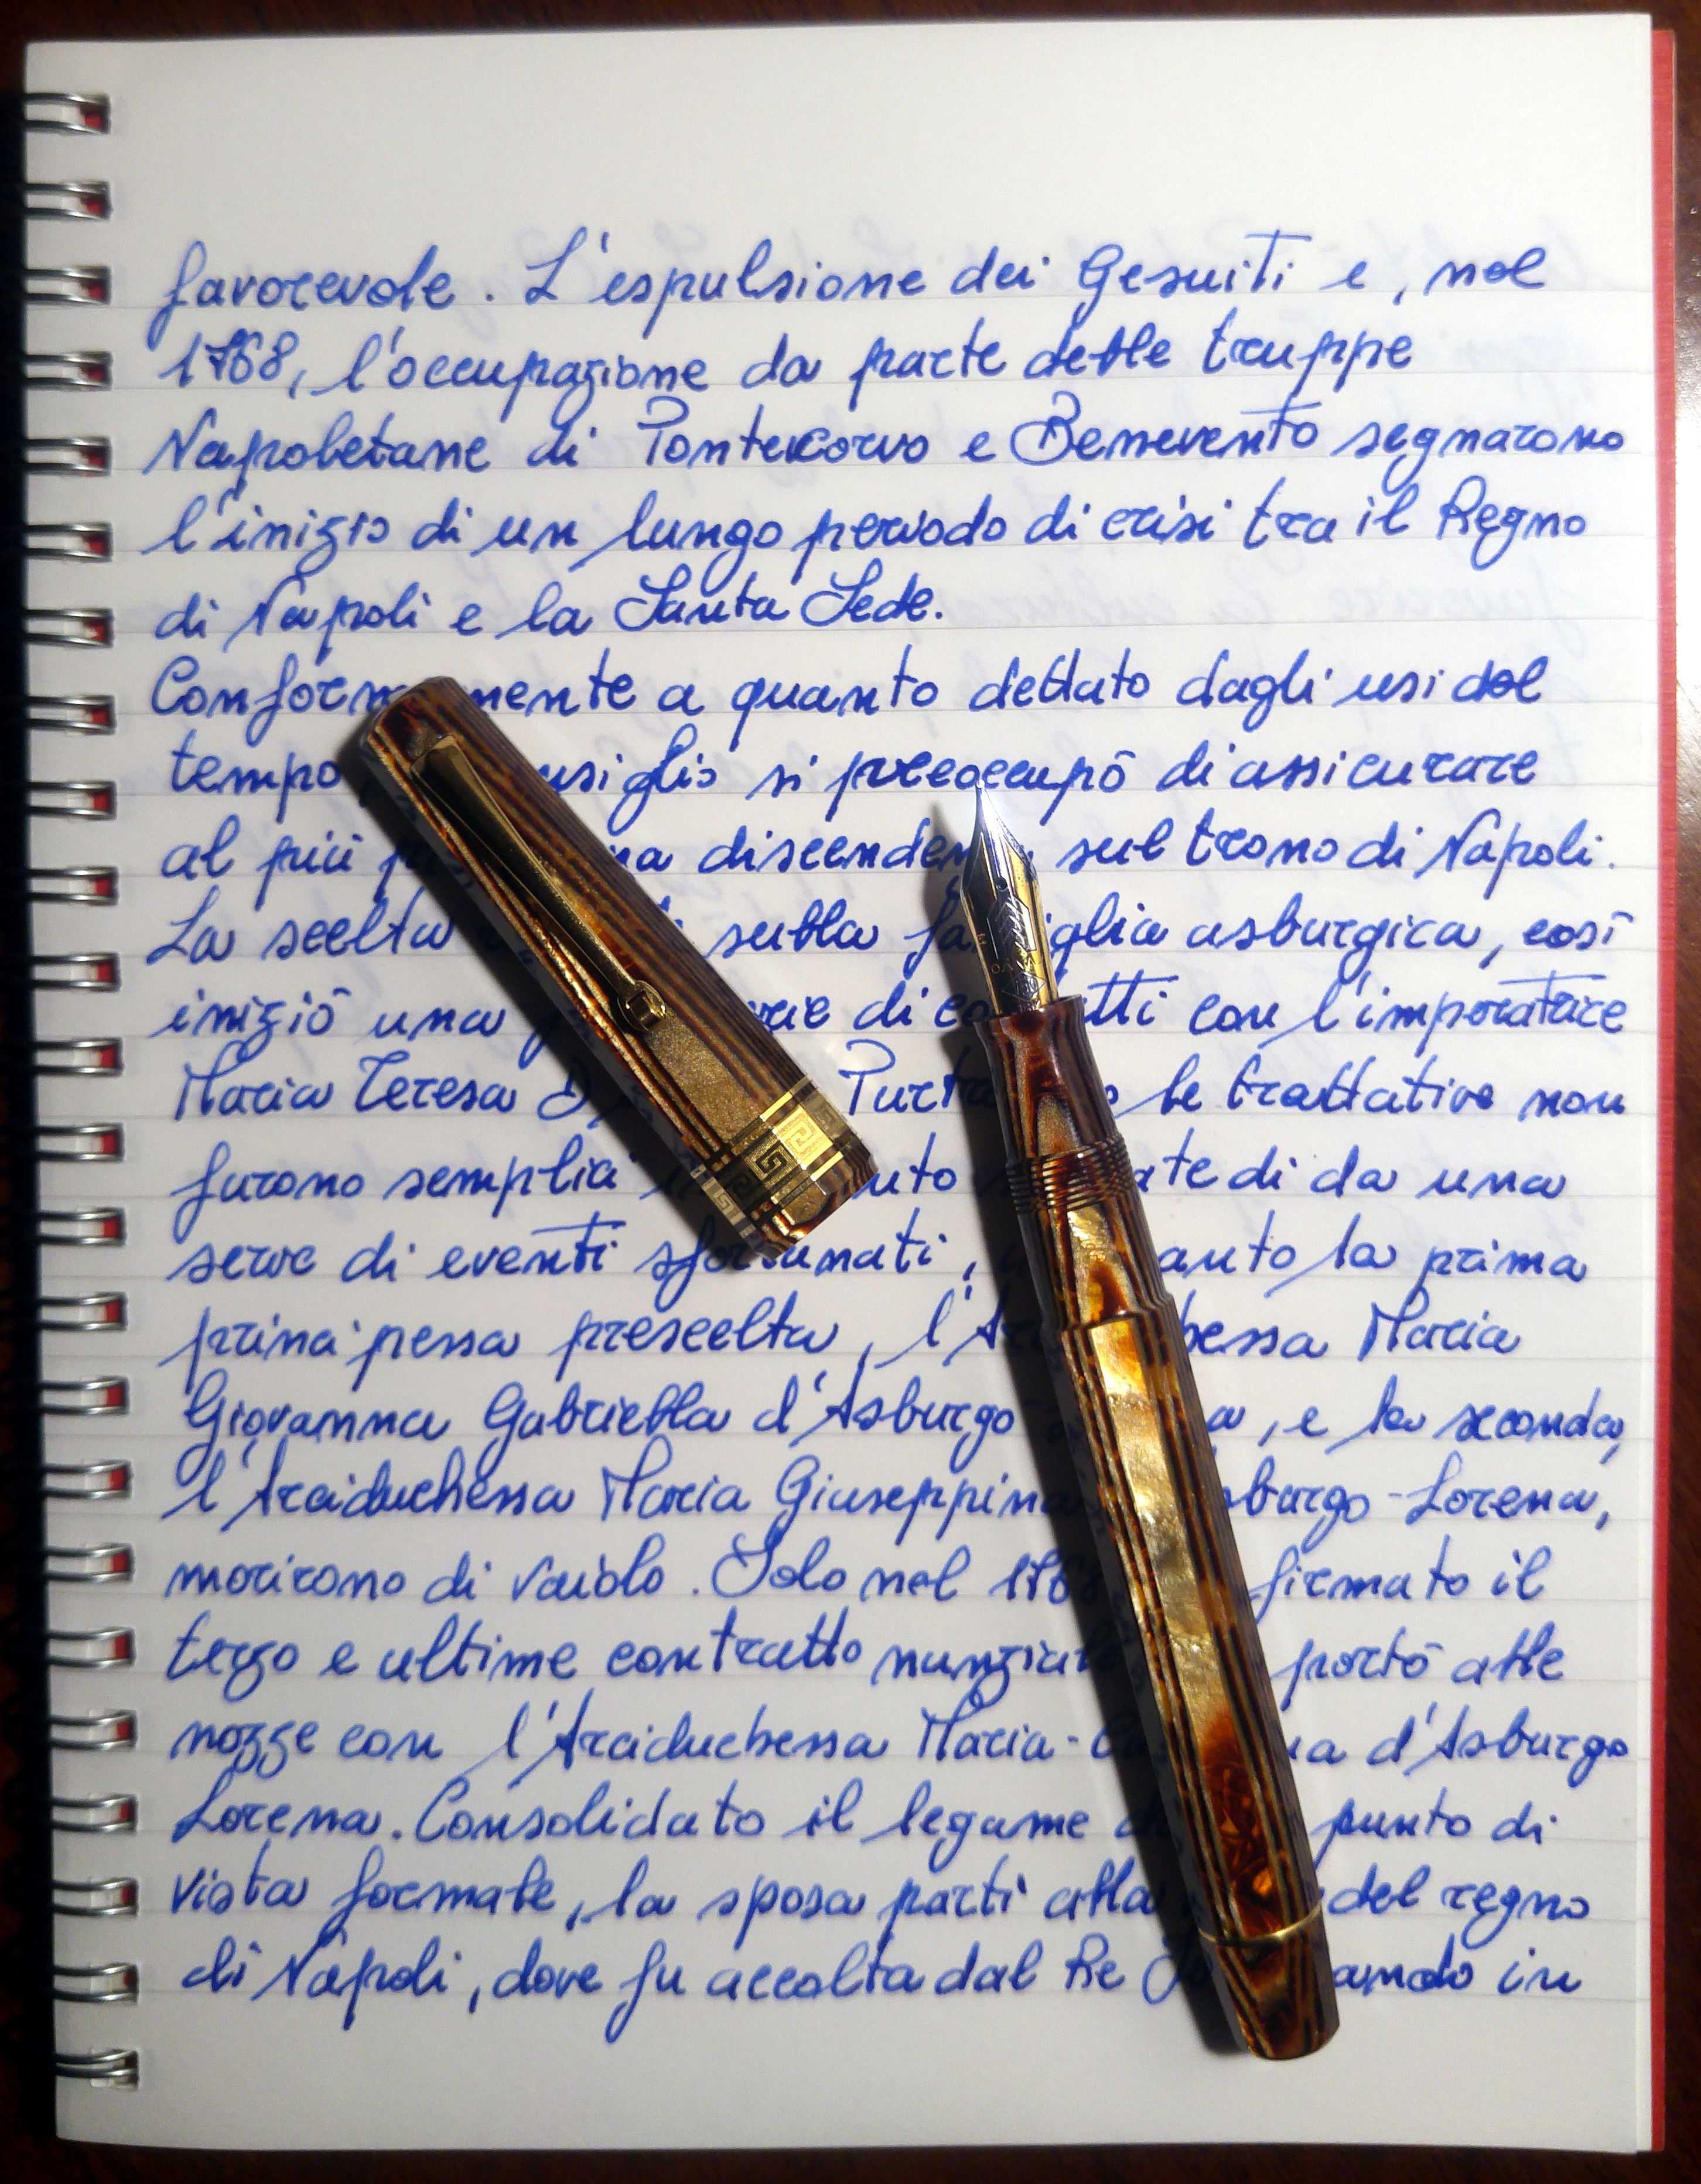 favorevole. L'espulsione dei Gesuiti e, nel
1768, l'occupazione da parte delle truppe
Napoletane di Pontecorvo e Benevento segnarono
l'inizio di un lungo periodo di crisi tra il Regno
di Napoli e la Santa Sede.
Conform mente a quanto dettato dagli usi del
tempo siglio si preoccupò di assicurare
al più na discenden sul trono di Napoli.
La scelta sulla fa iglia asburgica, così
iniziò una di co atti con l'imperatrice
Maria Teresa Purt o le trattative non
furono semplici uto ate di da una
serie di eventi sfortunati, anto la prima
principessa prescelta, l'Ar hessa Maria
Giovanna Gabriella d'Asburgo a, e la seconda,
l'Arciduchessa Maria Giuseppina sburgo-Lorena,
morirono di vaiolo. Solo nel 176 firmato il
terzo e ultime contratto nunzial portò alle
nozze con l'Arciduchessa Maria-Ca na d'Asburgo
Lorena. Consolidato il legame d punto di
vista formale, la sposa partì alla del regno
di Napoli, dove fu accolta dal Re amdo in